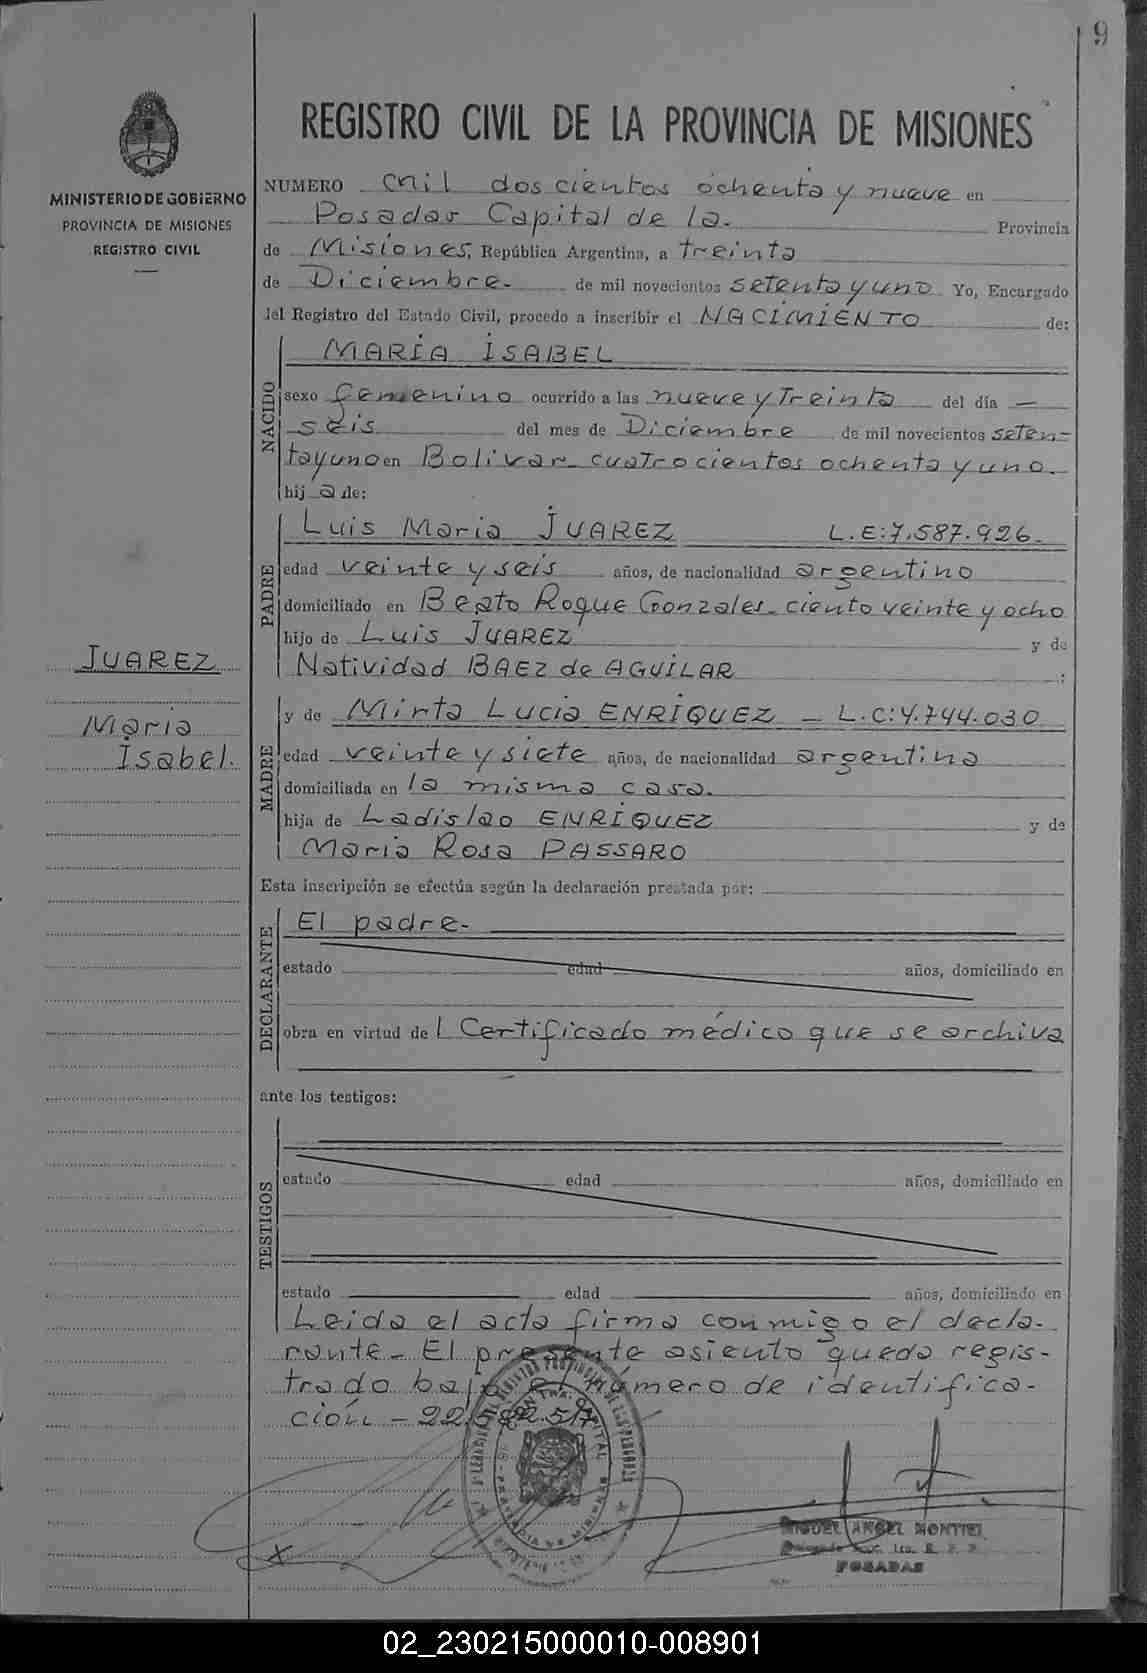 9
REGISTRO CIVIL DE LA PROVINCIA DE MISIONES
MINISTERIO DE GOBIERNO
PROVINCIA DE MISIONES
REGISTRO CIVIL
NUMERO mil doscientos ochenta y nueve en
Posadas Capital de la. Provincia
de Misiones, República Argentina, a treinta
de Diciembre. de mil novecientos setenta y uno Yo, Encargado
del Registro del Estado Civil, procedo a inscribir el NACIMIENTO de:
NACIDO
MARIA ISABEL
sexo femenino ocurrido a las nueve y Treinta del día —
seis del mes de Diciembre de mil novecientos seten=
tayuno en Bolivar cuatrocientos ochenta y uno.
hij a de:
PADRE
Luis Maria JUAREZ L.E:7.587.926.
edad veinte y seis años, de nacionalidad argentino
domiciliado en Beato Roque Gonzales ciento veinte y ocho
hijo de Luis JUAREZ y de
Natividad BAEZ de AGUILAR :
JUAREZ
Maria
Isabel.
MADRE
y de Mirta Lucia ENRIQUEZ — L.C:4.744.030
edad veinte y siete años, de nacionalidad argentina
domiciliada en la misma casa.
hija de Ladislao ENRIQUEZ y de
Maria Rosa PASSARO
Esta inscripción se efectúa según la declaración prestada por:
DECLARANTE
El padre.
estado edad años, domiciliado en
obra en virtud de l Certificado médico que se archiva
ante los testigos:
TESTIGOS
estado edad años, domiciliado en
estado edad años, domiciliado en
Leida el acta firma conmigo el decla-
rante - El presente asiento queda regis-
trado bajo el número de identifica-
ción - 22.
MIGUEL ANGEL MONTIEL
POSADAS
02_230215000010-008901